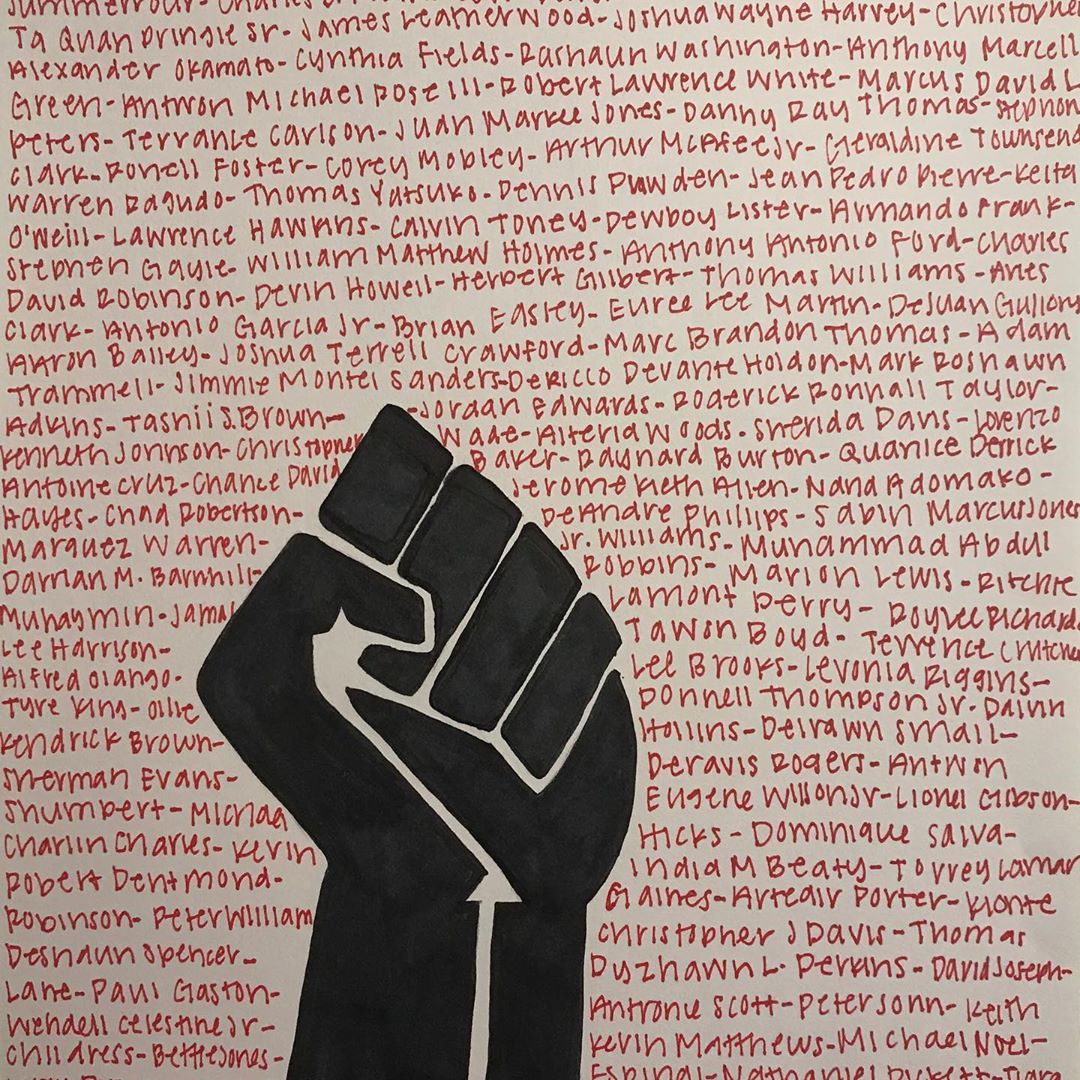 Ta Quan Pringle Sr- James Leatherwood- Joshua Wayne Harvey- Christopher
Alexander Okamato- Cynthia Fields- Rashaun Washington- Anthony Marcell
Green- Antwon Michael Rose III- Robert Lawrence White- Marcus David L
Peters- Terrance Carlson- Juan Markee Jones- Danny Ray Thomas- Stephon
Clark- Ronell Foster- Corey Mobley- Arthur McAfee Jr- Geraldine Townsend
Warren Ragudo- Thomas Yatsuko- Dennis Plowden- Jean Pedro Pierre- Keita
O'Neill- Lawrence Hawkins- Calvin Toney- Dewboy Lister- Armando Frank-
Stephen Gayle- William Matthew Holmes- Anthony Antonio Ford- Charles
David Robinson- Devin Howell- Herbert Gilbert- Thomas Williams- Aries
Clark- Antonio Garcia Jr- Brian Easley- Euree Lee Martin- DeJuan Guillory
Aaron Bailey- Joshua Terrell Crawford- Marc Brandon Thomas- Adam
Trammell- Jimmie Montel Sanders- DeRicco Devante Holdon- Mark Roshawn
Adkins- Tashii S. Brown- -Jordan Edwards- Roderick Ronnall Taylor-
Kenneth Johnson- Christopher Wade- Alteria Woods- Sherida Davis- Lorenzo
Antoine Cruz- Chance David Baker- Raynard Burton- Quanice Derrick
Hayes- Chad Robertson- Jerome Keith Allen- Nana Adomako-
Marquez Warren- DeAndre Phillips- Sabin Marcus Jones
Darrian M. Barnhill- Jr. Williams- Muhammad Abdul
Muhaymin- Jamal Robbins- Marion Lewis- Ritchie
Lee Harrison- Lamont Perry- Roylee Richard
Alfred Olango- Tawon Boyd- Terrence Crutcher
Tyre King- Ollie Lee Brooks- Levonia Riggins-
Kendrick Brown- Donnell Thompson Jr. Dalvin
Sherman Evans- Hollins- Delrawn Small-
Shumpert- Michael Deravis Rogers- Antwon
Charlin Charles- Kevin Eugene Wilson Jr- Lionel Gibson-
Robert Dentmond- Hicks- Dominique Salva-
Robinson- Peter William India M Beaty- Torrey Lamar
Deshaun Spencer- Gaines- Arteair Porter- Kionte
Lane- Paul Gaston- Christopher J Davis- Thomas
Wendell Celestine Jr- Dyzhawn L. Perkins- David Joseph-
Childress- Bettie Jones- Antronie Scott- Peter John- Keith
Kevin Matthews- Michael Noel-
Espinal- Nathaniel Pickett- Tiara